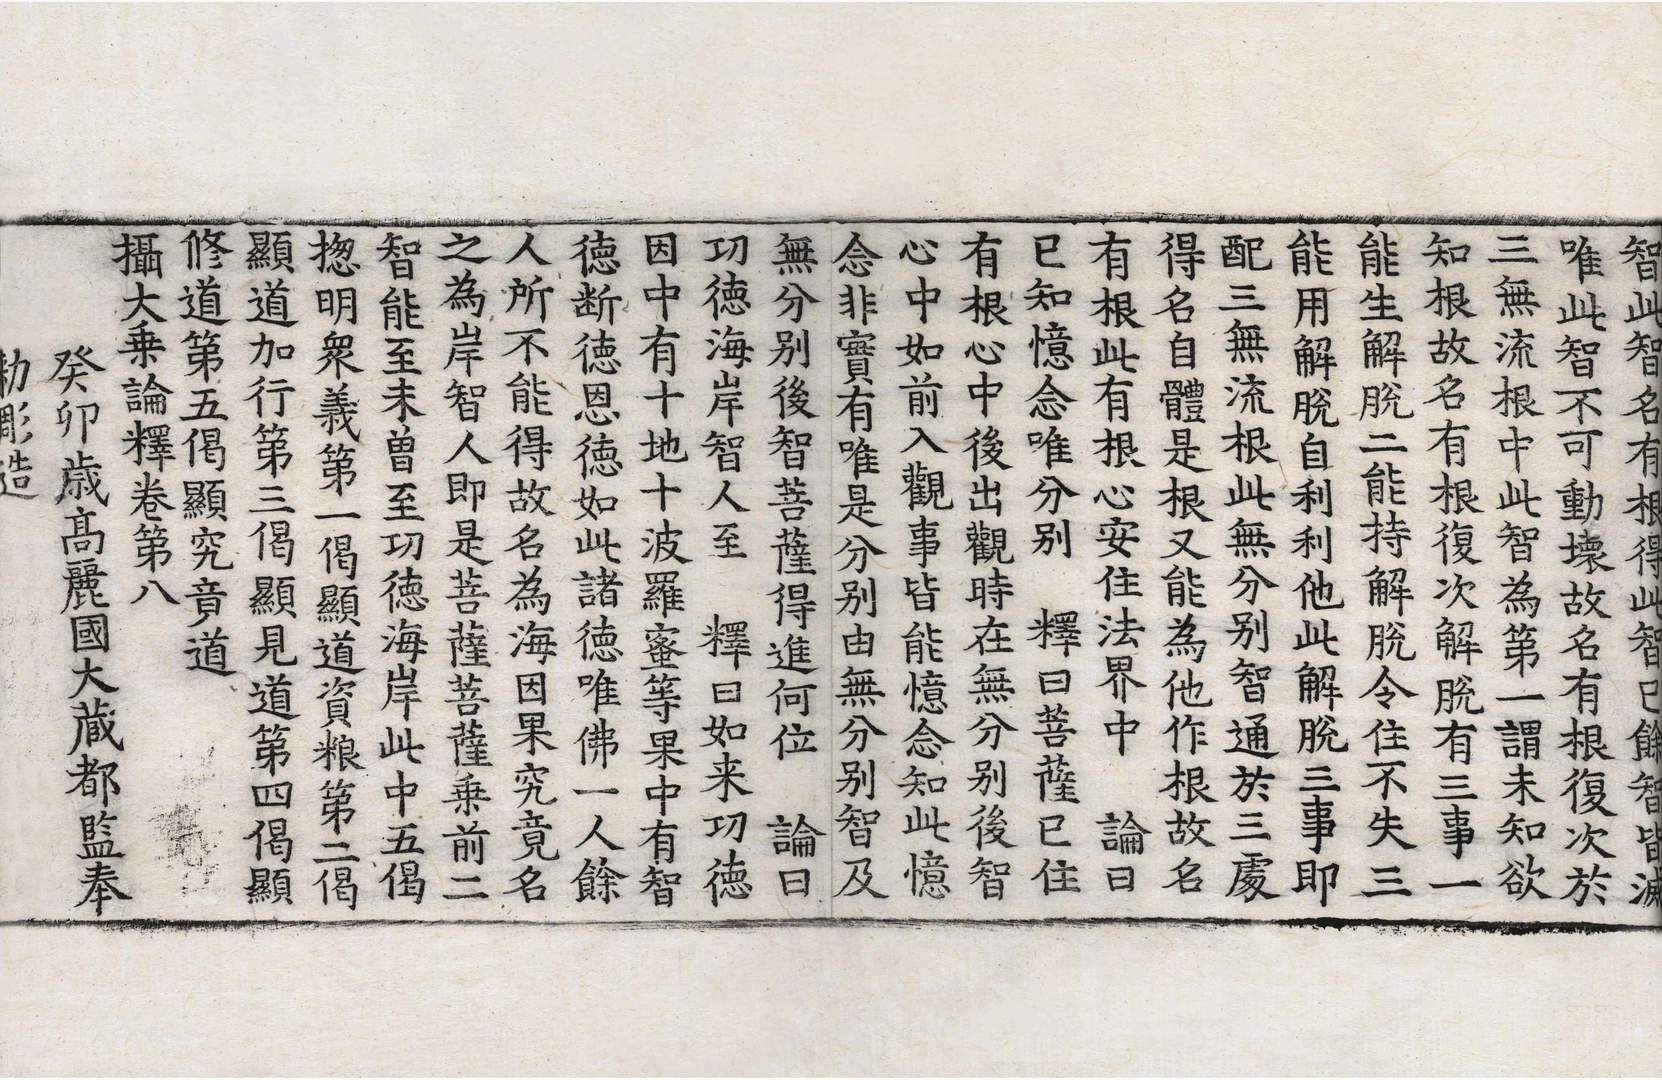 智此智名有根得此智已餘智皆滅
唯此智不可動壞故名有根復次於
三無流根中此智為第一謂未知欲
知根故名有根復次解脫有三事一
能生解脫二能持解脫令住不失三
能用解脫自利利他此解脫三事即
配三無流根此無分别智通於三處
得名自體是根又能為他作根故名
有根此有根心安住法界中　論曰
已知憶念唯分别　釋曰菩薩已住
有根心中後出觀時在無分别後智
心中如前入觀事皆能憶念知此憶
念非實有唯是分别由無分别智及
無分别後智菩薩得進何位　論曰
功德海岸智人至　釋曰如来功德
因中有十地十波羅蜜等果中有智
德断德恩德如此諸德唯佛一人餘
人所不能得故名為海因果究竟名
之為岸智人即是菩薩菩薩乗前二
智能至未曽至功德海岸此中五偈
揔明衆義第一偈顯道資粮第二偈
顯道加行第三偈顯見道第四偈顯
修道第五偈顯究竟道
攝大乗論釋卷第八
癸卯歲高麗國大藏都監奉
勑彫造